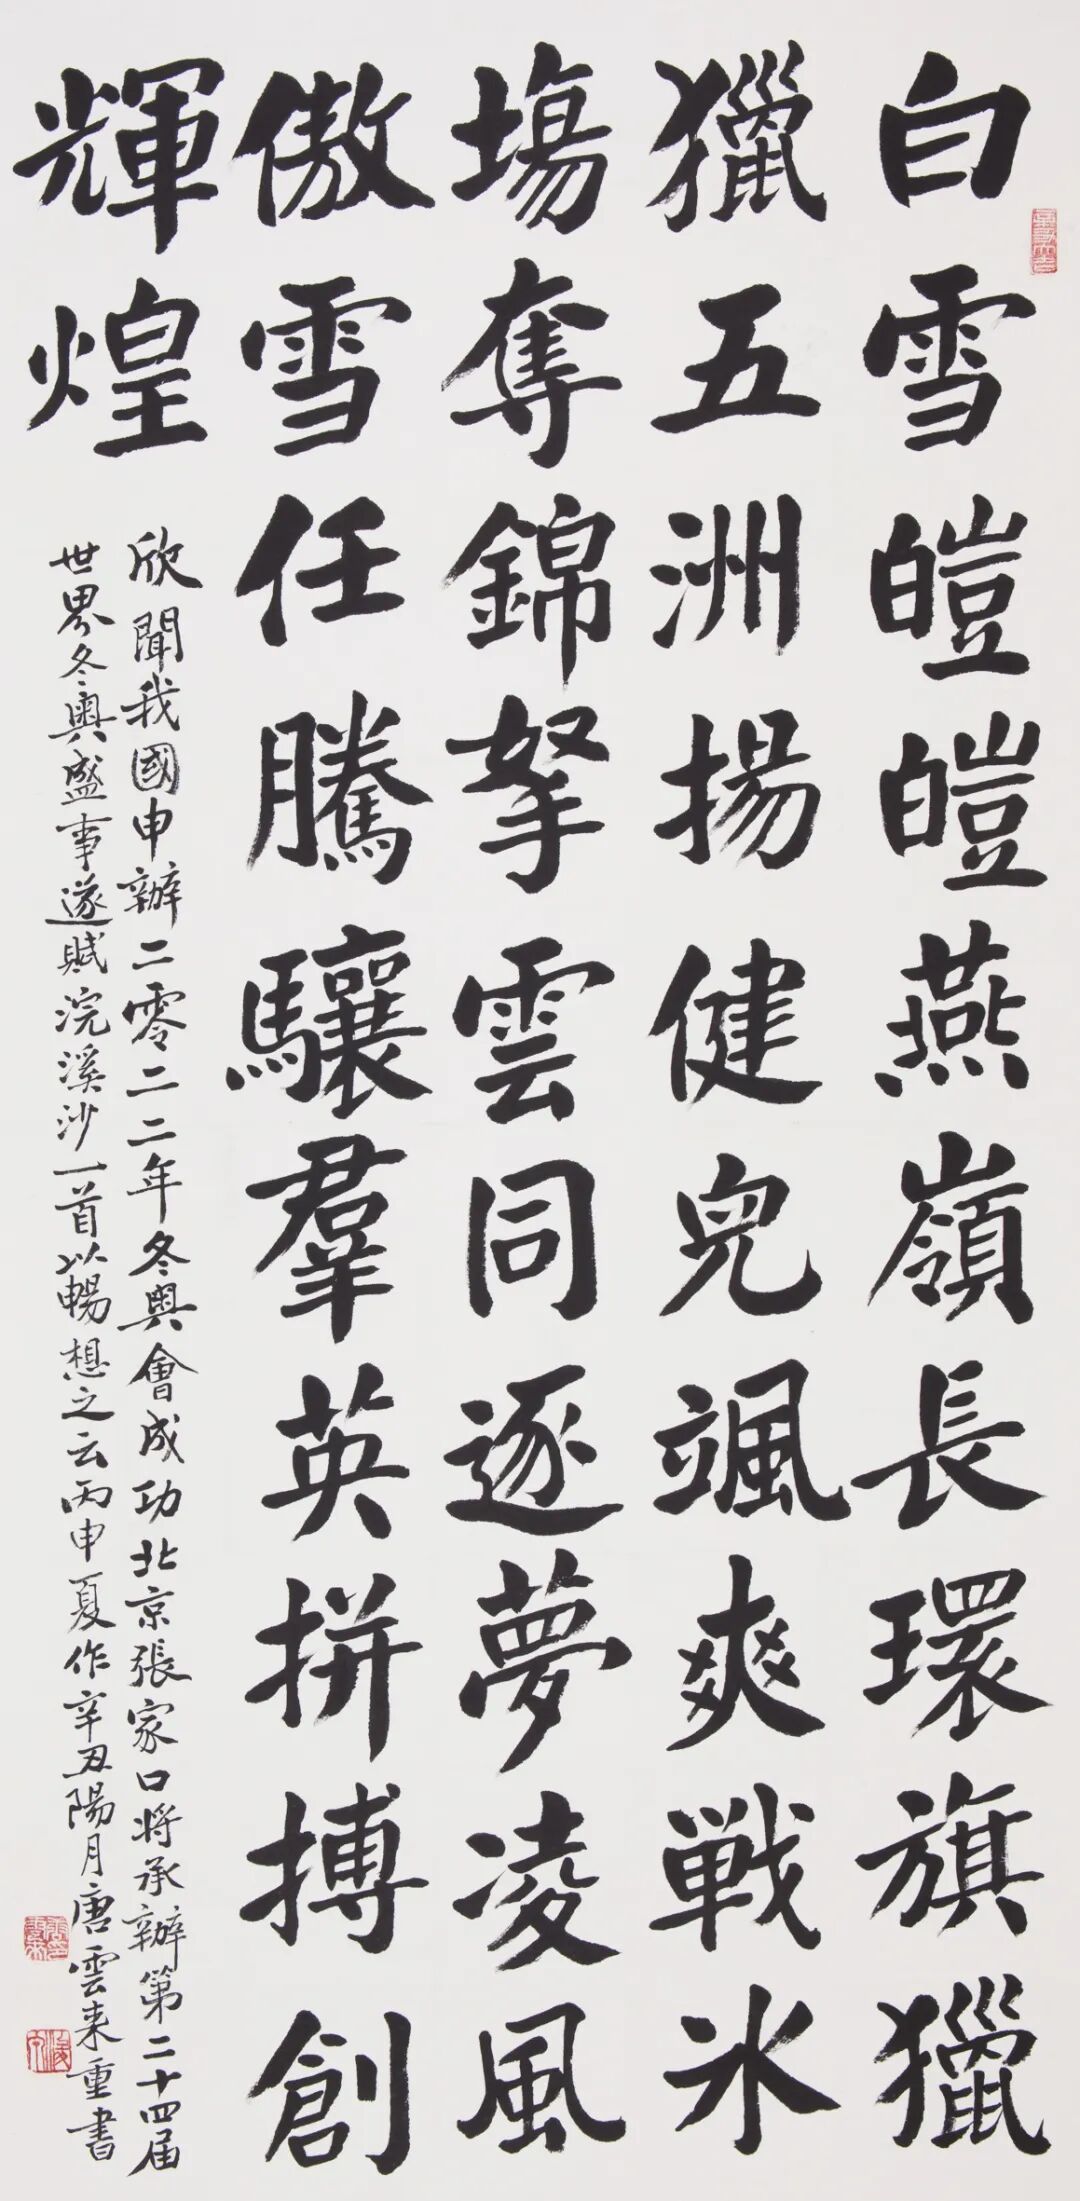 白雪皚皚燕嶺長環旗獵
獵五洲揚健兒颯爽戰冰
場奪錦拏雲同逐夢凌風
傲雪任騰驤羣英拼搏創
輝煌
欣聞我國申辦二零二二年冬奧會成功北京張家口将承辦第二十四届
世界冬奧盛事遂賦浣溪沙一首以暢想之云丙申夏作辛丑陽月唐雲来重書